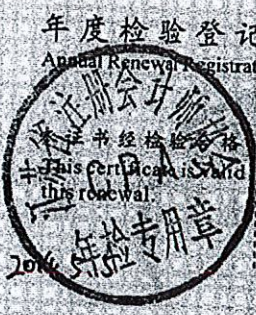 年度检验登记
Annual Renewal Registrat
本证书经检验合格
This certificate is valid
this renewal.
注册会计师
CPA
年检专用章